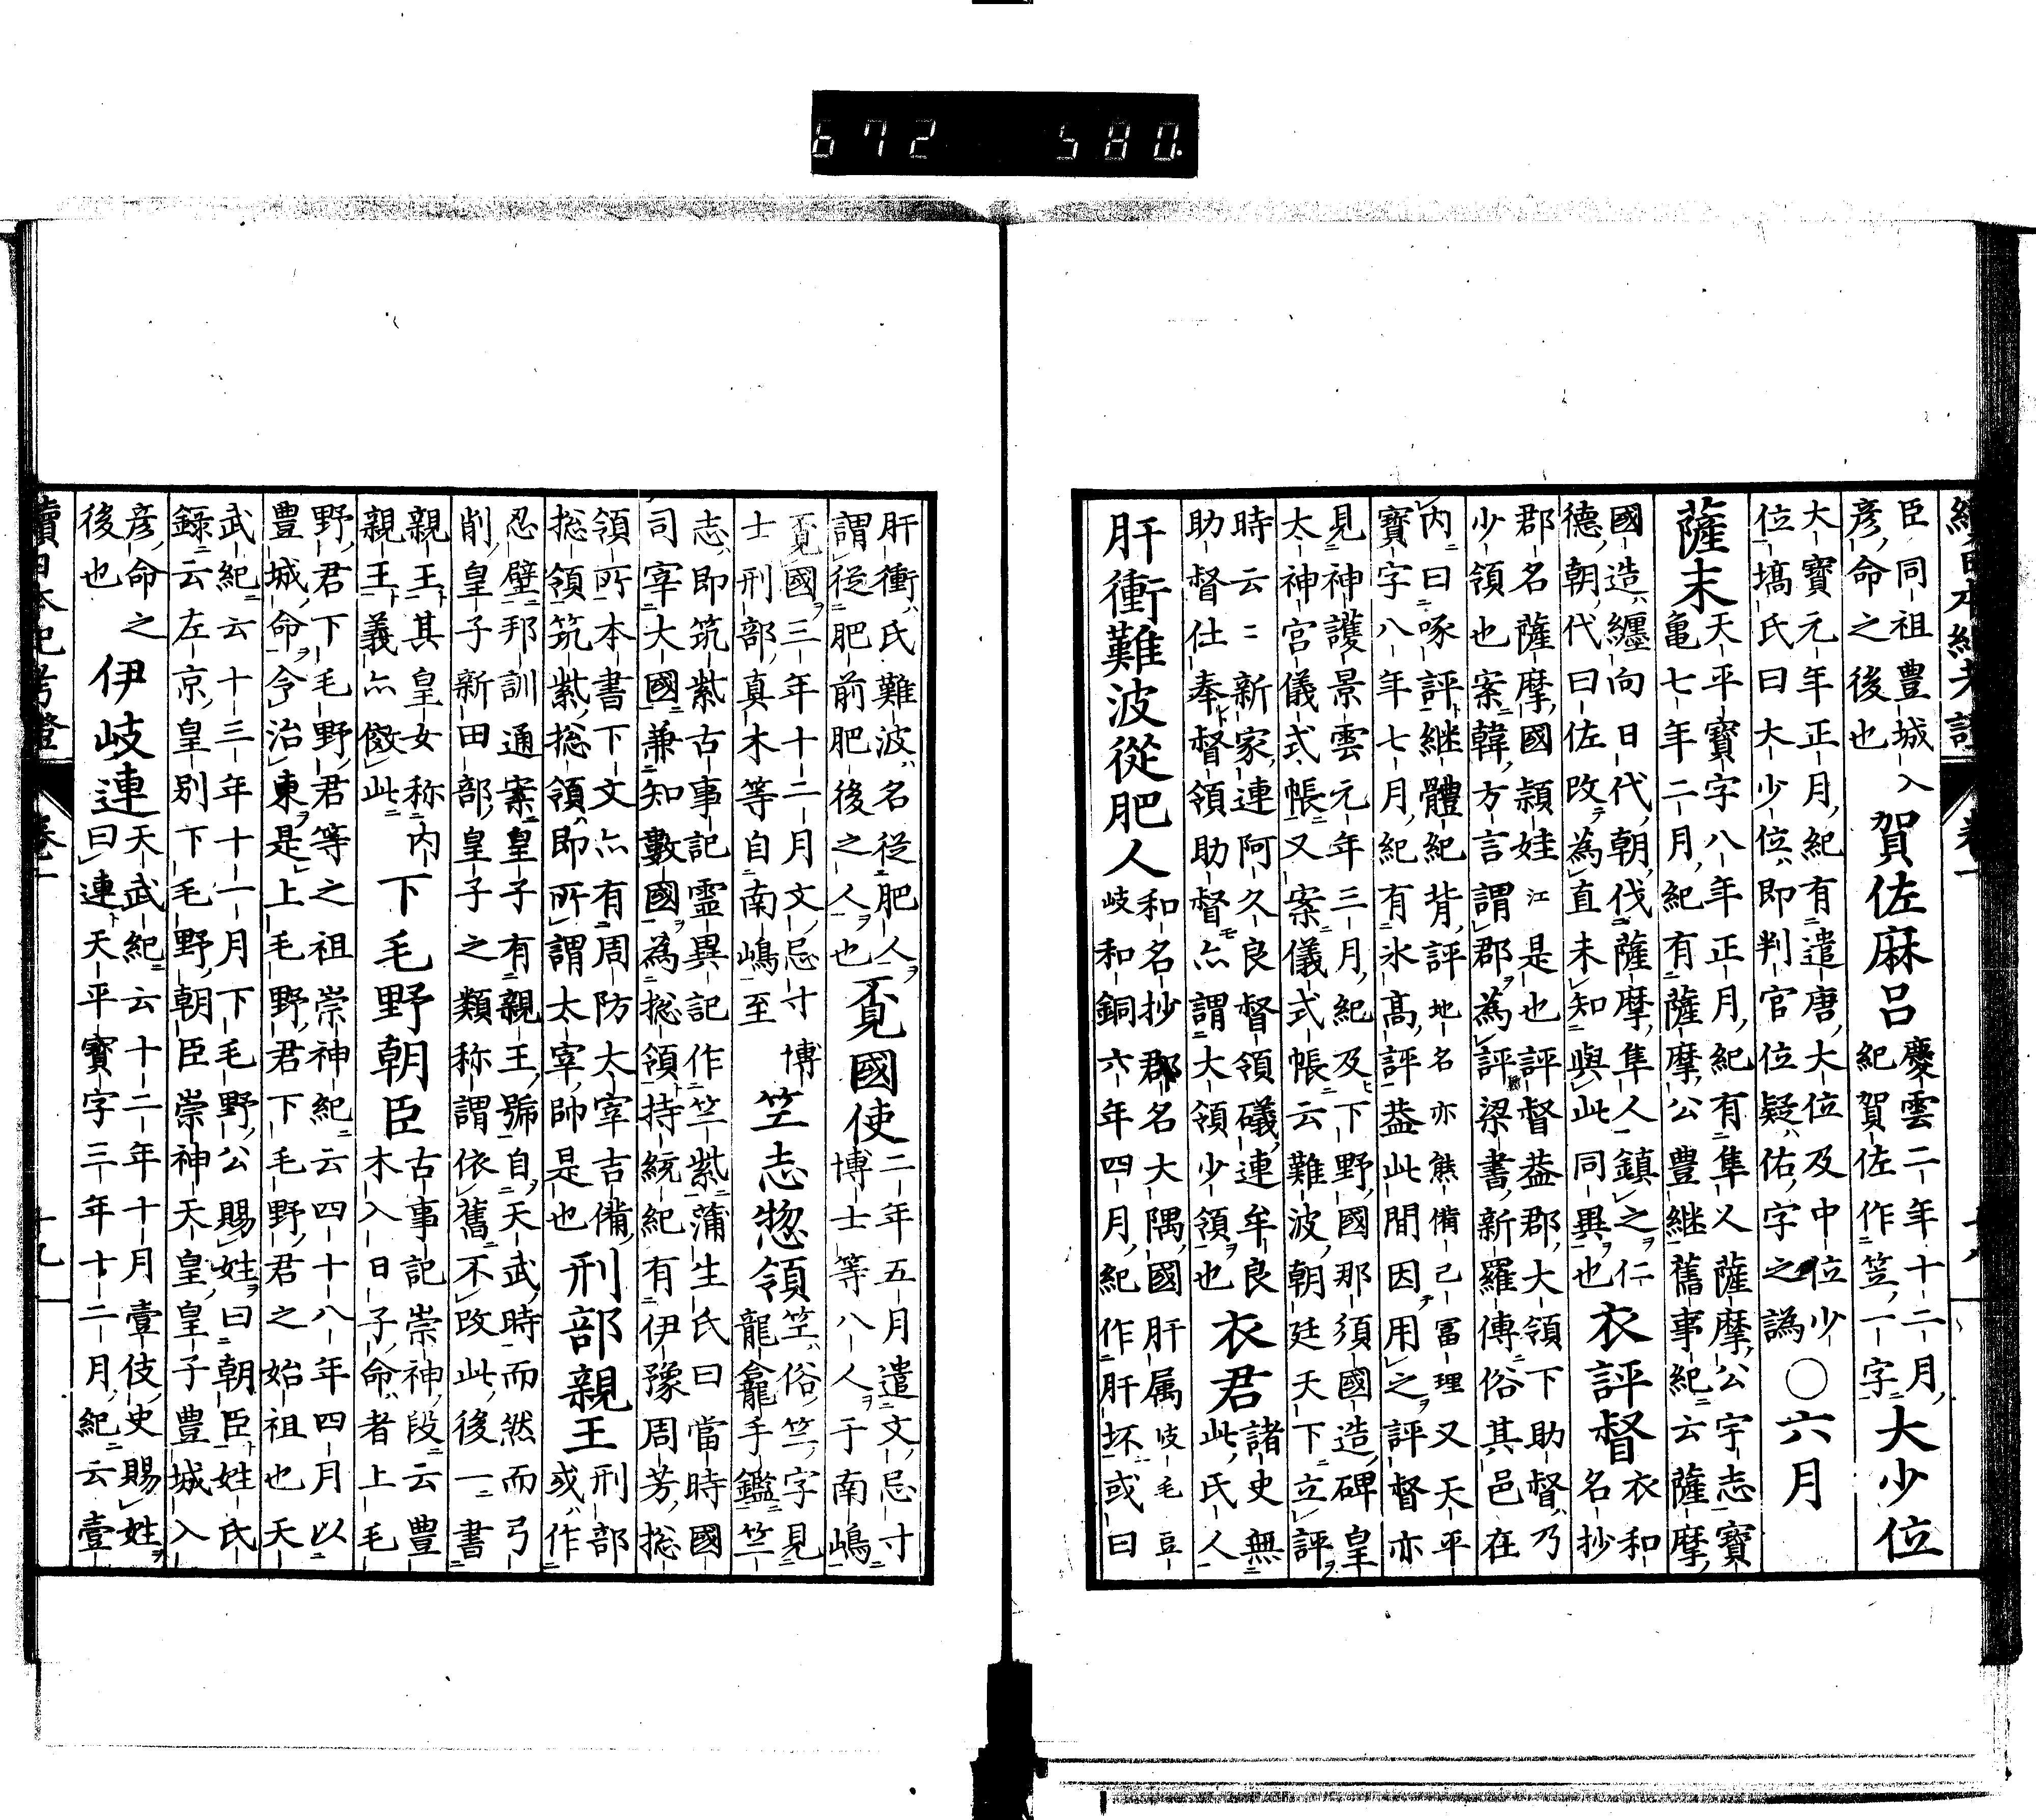 672 580
臣同祖豊城入
彦命之後也
賀佐麻呂
慶雲二年十二月
紀賀佐作笠一字
大少位
大寶元年正月紀有遣唐大位及中位少
位塙氏曰大少位即判官位疑佑字之譌
○六月
薩末
天平寶字八年正月紀有隼人薩摩公宇志寶
亀七年二月紀有薩摩公豊継舊事紀云薩摩
國造纏向日代朝伐薩摩隼人鎮之仁
德朝代曰佐改為直未知與此同異也
衣評督
衣和
名抄
郡名薩摩國頴娃江是也評督蓋郡大領下助督乃
少領也案韓方言謂郡為評梁書新羅傳俗其邑在
内曰啄評継體紀背評地名亦熊備己冨理又天平
寶字八年七月紀有氷高評蓋此間因用之評督亦
見神護景雲元年三月紀及下野國那須國造碑皇
太神宮儀式帳又案儀式帳云難波朝廷天下立評
時云〻新家連阿久良督領礒連牟良
助督仕奉督領助督亦謂大領少領也
衣君
諸史無
此氏人
肝衝難波從肥人
和名抄郡名大隅國肝属岐毛豆
岐和銅六年四月紀作肝坏或曰
肝衝氏難波名從肥人
謂從肥前肥後之人也
覓國使
二年五月遣文忌寸
博士等八人于南嶋
覓國三年十二月文忌寸博
士刑部真木等自南嶋至
竺志惣領
竺俗竺字見
龍龕手鑑竺
志即筑紫古事記靈異記作竺紫蒲生氏曰當時國
司宰大國兼知數國為捴領持統紀有伊豫周芳捴
領所本書下文亦有周防太宰吉備
捴領筑紫捴領即所謂太宰帥是也
刑部親王
刑部
或作
忍壁邦訓通案皇子有親王號自天武時而然而弓
削皇子新田部皇子之類称謂依舊不改此後一書
親王其皇女称内
親王義亦倣此
下毛野朝臣
古事記崇神段云豊
木入日子命者上毛
野君下毛野君等之祖崇神紀云四十八年四月以
豊城命令治東是上毛野君下毛野君之始祖也天
武紀云十三年十一月下毛野公賜姓曰朝臣姓氏
錄云左京皇別下毛野朝臣崇神天皇皇子豊城入
彦命之
後也
伊岐連
天武紀云十二年十月壹伎史賜姓
曰連天平寶字三年十二月紀云壹
續日本紀考證
卷一
十九